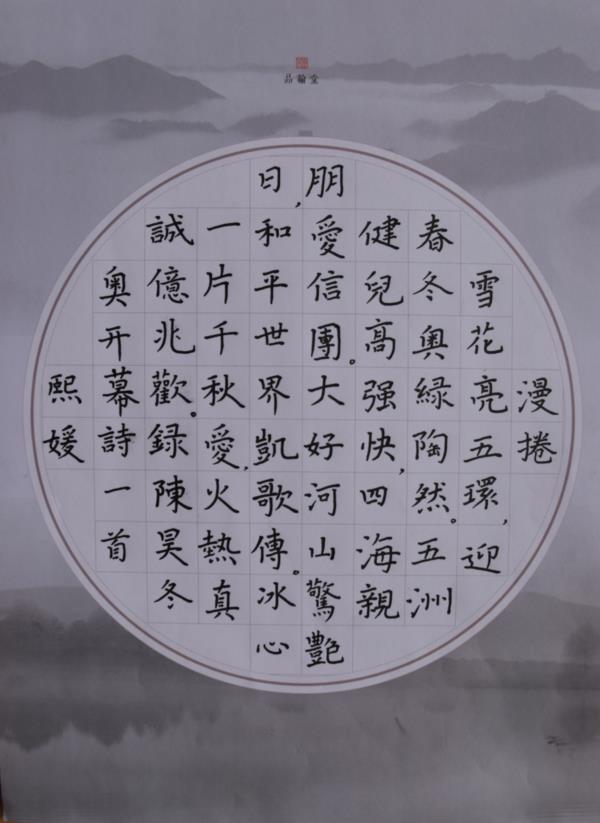 品翰堂
漫捲
雪花亮五環，迎
春冬奧緑陶然。五洲
健兒高强快，四海親
朋愛信團。大好河山驚艷
日，和平世界凱歌傳。冰心
一片千秋愛，火熱真
誠億兆歡。録陳昊冬
奥开幕詩一首
熙媛